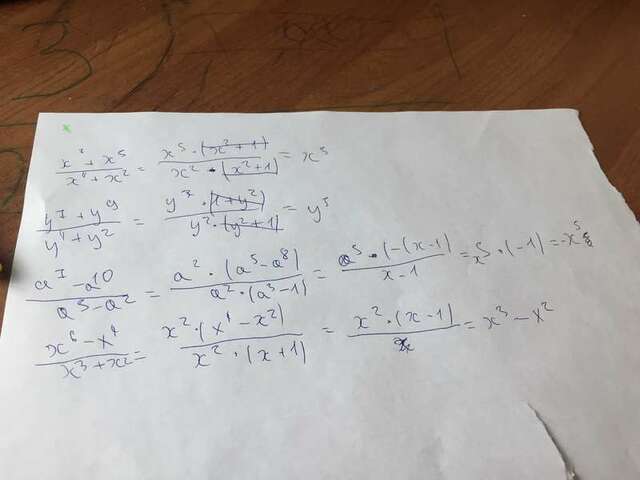 (x⁷ + x⁵)/(x⁴ + x²) = (x⁵ · (x² + 1))/(x² · (x² + 1)) = x³
(y⁷ + y⁹)/(y⁴ + y²) = (y⁷ · (1 + y²))/(y² · (y² + 1)) = y⁵
(a⁷ - a10)/(a⁵ - a²) = (a² · (a⁵ - a⁸))/(a² · (a³ - 1)) = (a⁵ · (-(x - 1))/(x - 1) = x⁵ · (-1) = -x⁵
(x⁶ - x⁴)/(x³ + x²) = (x² · (x⁴ - x²))/(x² · (x + 1)) = x² · (x - 1) = x³ - x²